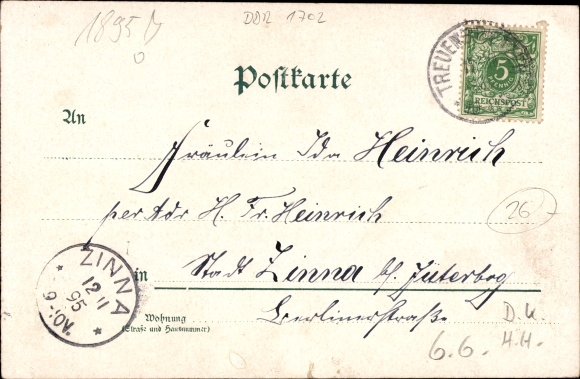 1895
DDR 1702
TREUEN
5
REICHSPOST
Postkarte
An
Fräulein Ida Heinrich
per Adr H. Fr. Heinrich
26
in Stadt Zinna b/ Jüterbog
Berlinerstraße
ZINNA
12 11
95
Wohnung
(Straße und Hausnummer)
D. U.
6.6. H.H.